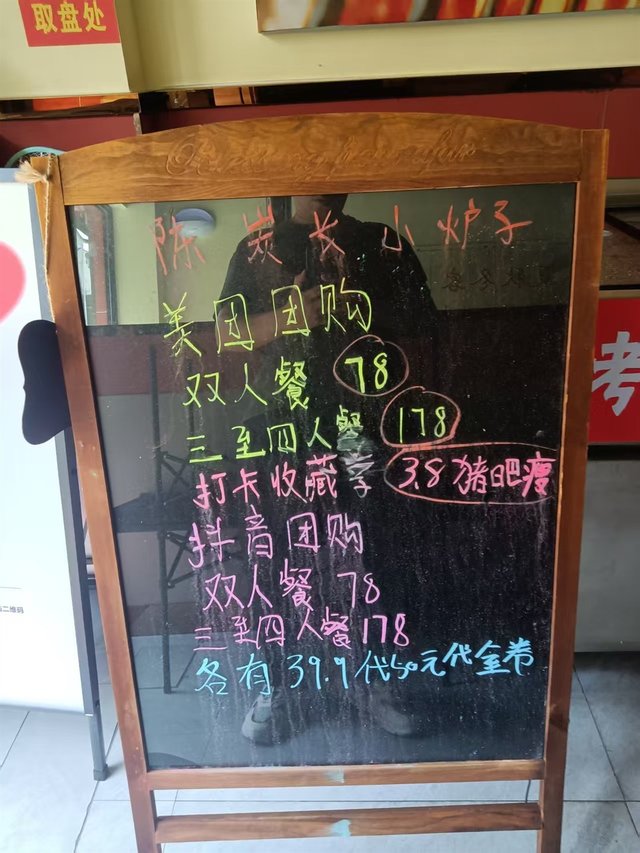 取盘处
陈炭长小炉子
美团团购
双人餐 78
三至四人餐 178
打卡收藏享 3.8 猪吧瘦
抖音团购
双人餐 78
三至四人餐 178
各有 39.9代50元代金卷
考
二维码